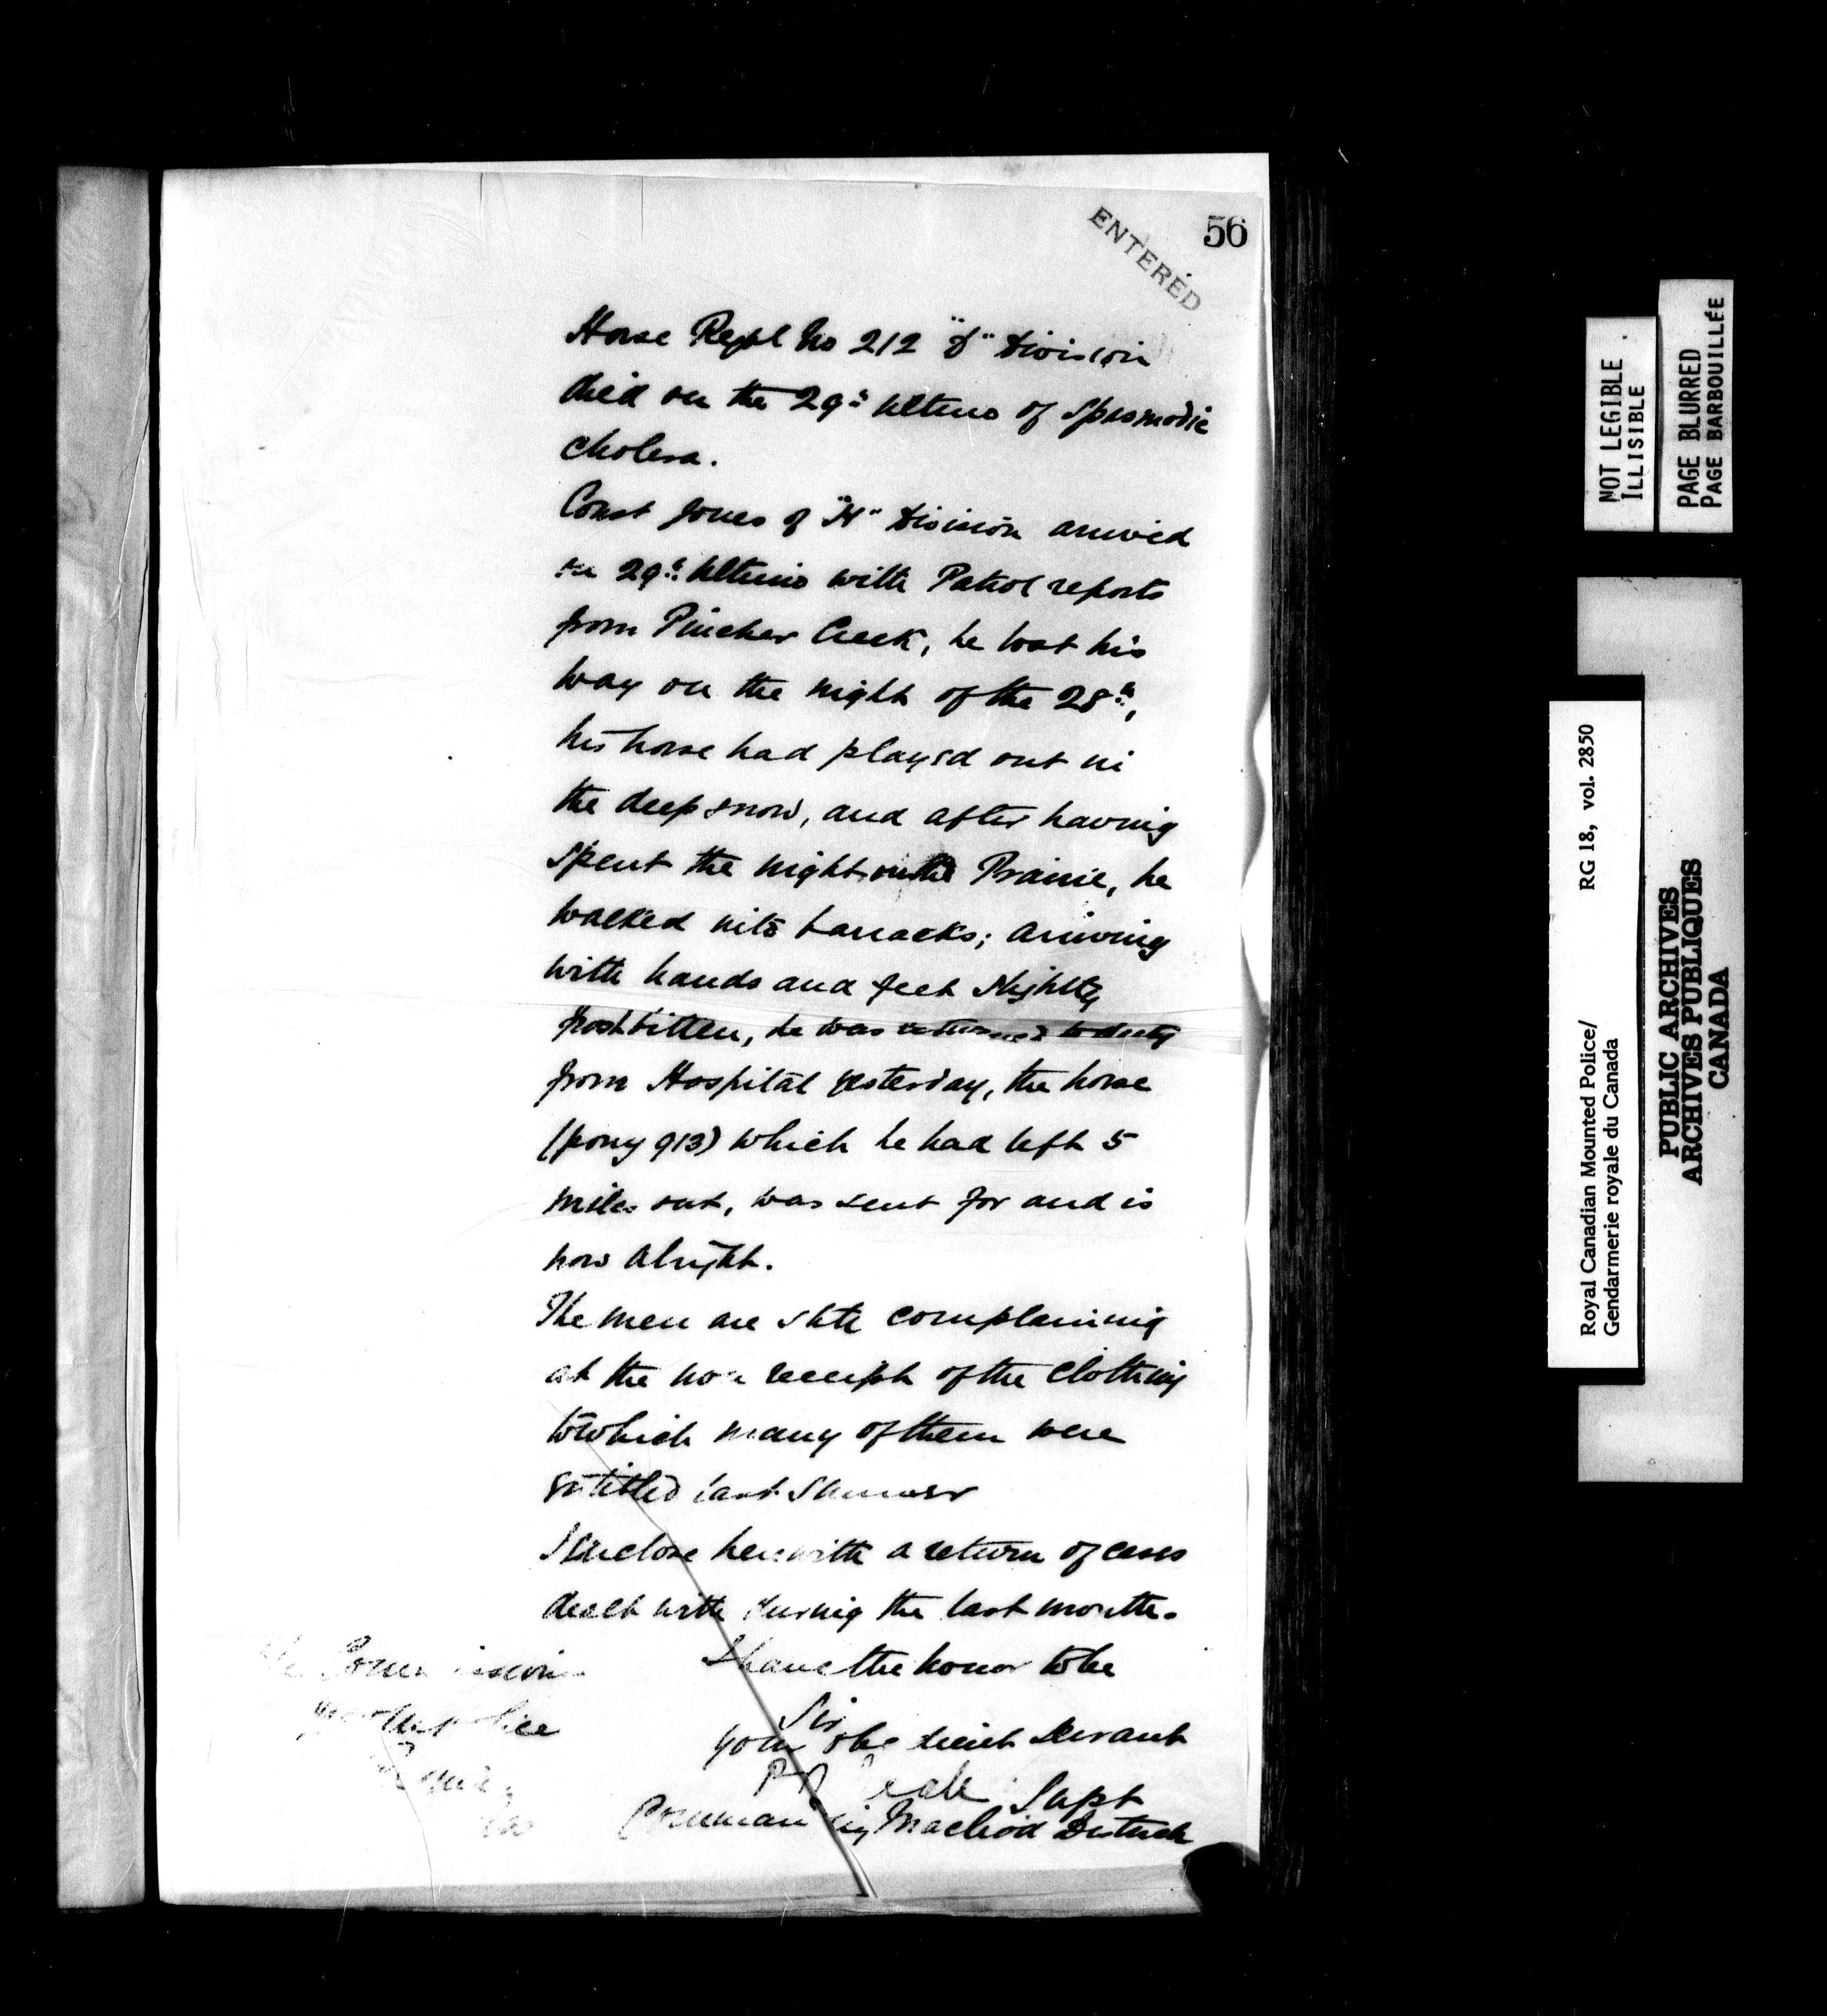 56
ENTERED
Horse Regtl No 212 "D" Division
died on the 29th ultimo of Spasmodic
Cholera.
Const Jones of "H" Division arrived
on 29th Ultimo with Patrol reports
from Pincher Creek, he lost his
way on the night of the 28th,
his horse had played out in
the deep snow, and after having
spent the night on the Prairie, he
walked into barracks; arriving
with hands and feet slightly
frostbitten, he was returned to duty
from Hospital yesterday, the horse
(pony 913) which he had left 5
miles out, was sent for and is
now alright.
The men are still complaining
at the non receipt of the clothing
to which many of them were
entitled last Summer
I enclose herewith a return of cases
dealt with during the last month.
I have the honor to be
Sir
your obedient Servant
Supt
Commanding Macleod District
The Commissioner
Police
Regina
NOT LEGIBLE
ILLISIBLE
PAGE BLURRED
PAGE BARBOUILLÉE
Royal Canadian Mounted Police/ RG 18, vol. 2850
Gendarmerie royale du Canada
PUBLIC ARCHIVES
ARCHIVES PUBLIQUES
CANADA